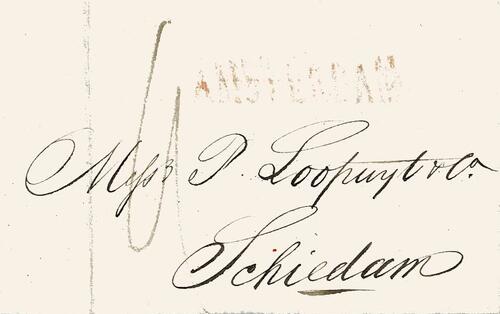 AMSTERDAM
Messrs P. Loopuyt & Co.
Schiedam